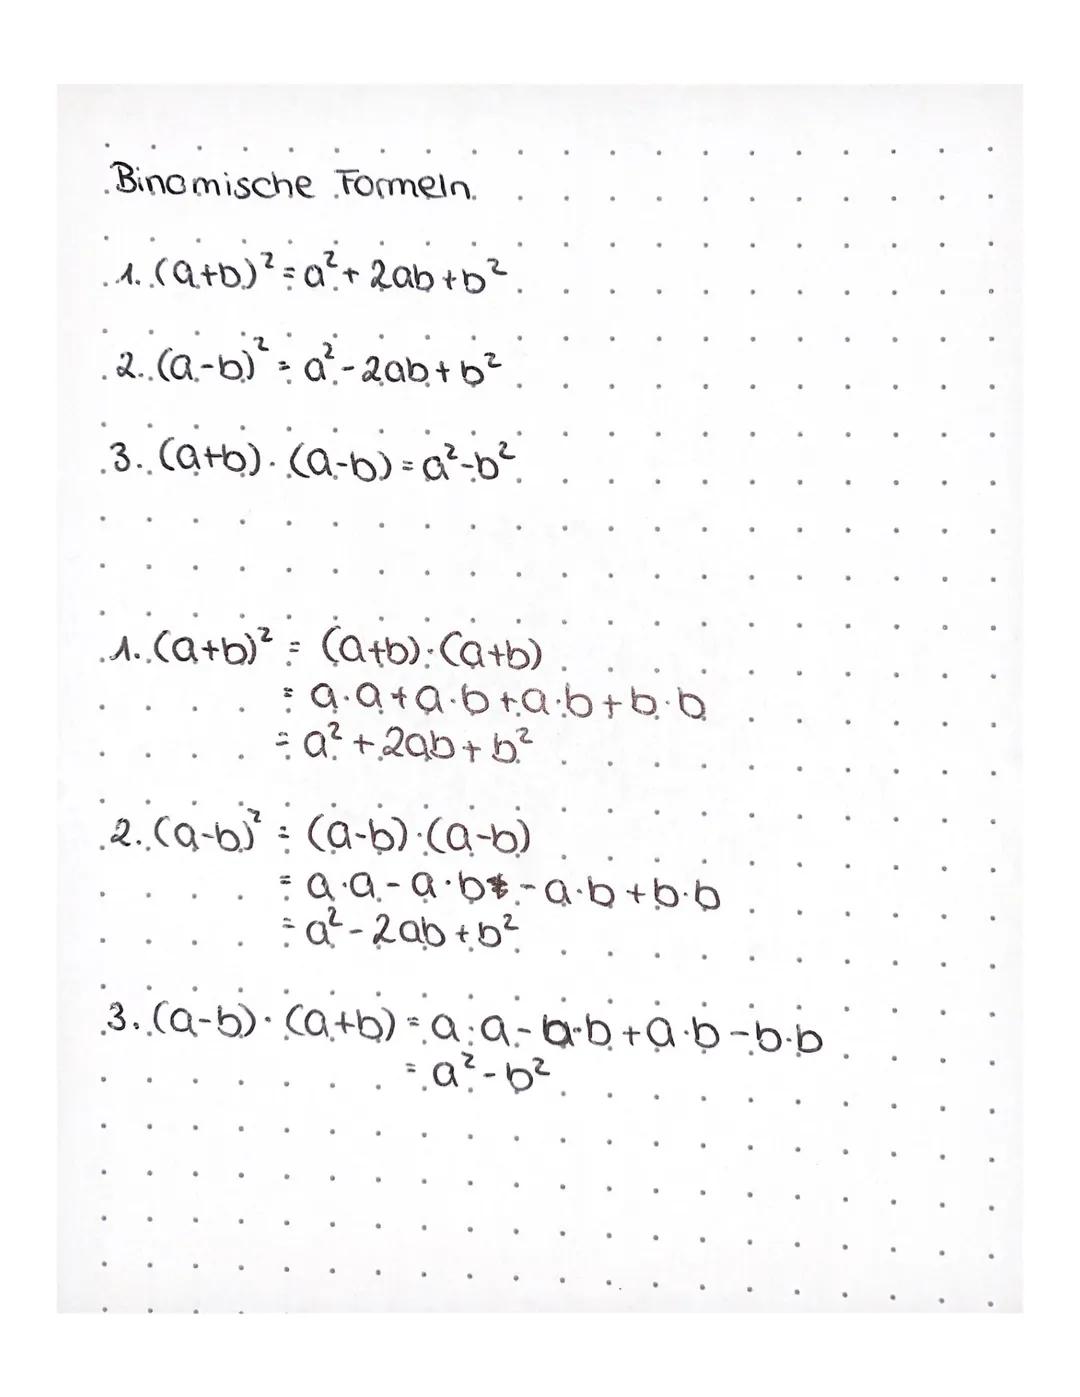 Binomische Formeln
1. (a+b)² = a² + 2ab + b²
2. (a-b)² = a² - 2ab + b²
3. (a+b) · (a-b) = a² - b²
1. (a+b)² = (a+b) · (a+b)
= a·a + a·b + a·b + b·b
= a² + 2ab + b²
2. (a-b)² = (a-b) · (a-b)
= a·a - a·b - a·b + b·b
= a² - 2ab + b²
3. (a-b) · (a+b) = a·a - a·b + a·b - b·b
= a² - b²